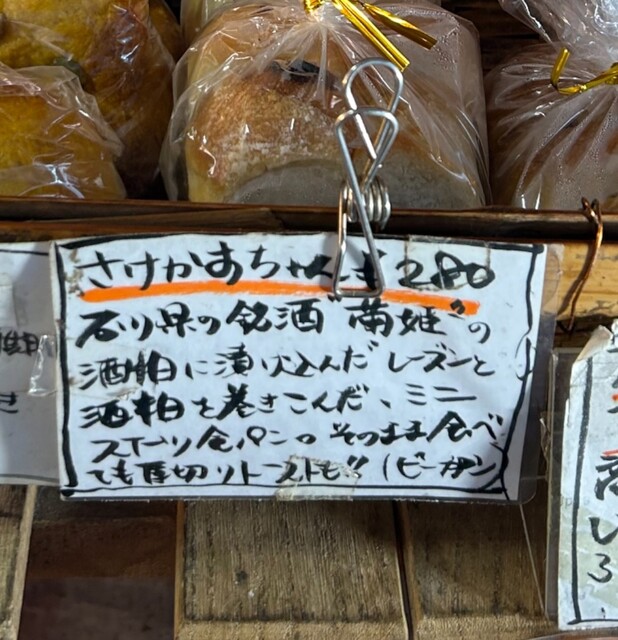 さけかすちゃんぽ 280
石川県の銘酒"菊姫"の
酒粕に漬け込んだレーズンと
酒粕を巻きこんだ、ミニ
スイーツ食パン。そのまま食べ
ても厚切りトーストも!! (ビーガン)
き
い
3